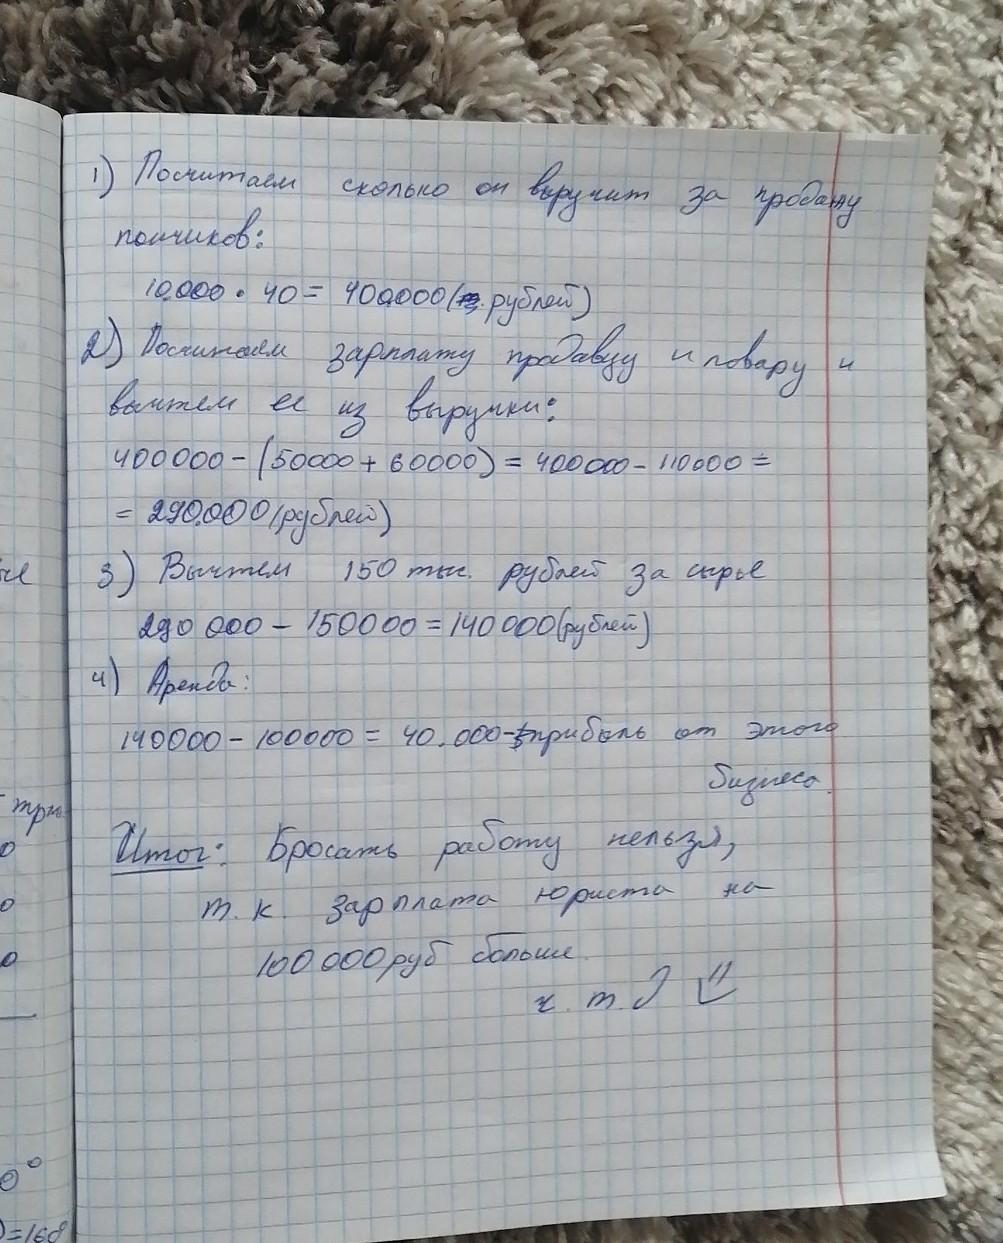 1) Посчитаем сколько он выручит за продажу
пончиков:
10.000 · 40 = 400.000 (рублей)
2) Посчитаем зарплату продавцу и повару и
вычтем ее из выручки:
400000 - (50000 + 60000) = 400000 - 110000 =
= 290.000 (рублей)
3) Вычтем 150 тыс. рублей за сырье
290 000 - 150000 = 140 000 (рублей)
4) Аренда:
140000 - 100000 = 40.000 - прибыль от этого
бизнеса.
Итог: Бросать работу нельзя,
т.к. зарплата юриста на
100 000 руб больше.
ч.т.д
0°
)=168